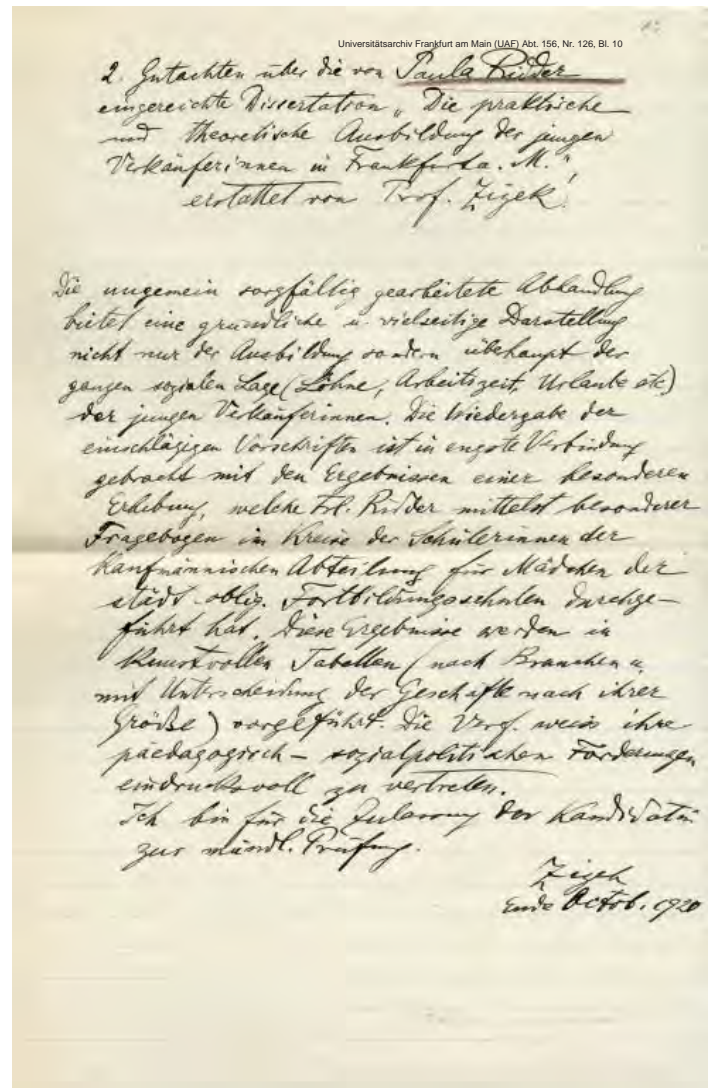 Universitätsarchiv Frankfurt am Main (UAF) Abt. 156, Nr. 126, Bl. 10
2. Gutachten über die von Paula Ridder
eingereichte Dissertation „Die praktische
und theoretische Ausbildung der jungen
Verkäuferinnen in Frankfurt a. M."
erstattet von Prof. Zizek.
Die ungemein sorgfältig gearbeitete Abhandlung
bietet eine gründliche u. vielseitige Darstellung
nicht nur der Ausbildung sondern überhaupt der
ganzen sozialen Lage (Löhne, Arbeitszeit, Urlaube etc)
der jungen Verkäuferinnen. Die Wiedergabe der
einschlägigen Vorschriften ist in engste Verbindung
gebracht mit den Ergebnissen einer besonderen
Erhebung, welche Frl. Ridder mittelst besonderer
Fragebogen im Kreise der Schülerinnen der
kaufmännischen Abteilung für Mädchen der
städt. oblig. Fortbildungsschulen durchge-
führt hat. Diese Ergebnisse werden in
kunstvollen Tabellen (nach Branchen u.
mit Unterscheidung der Geschäfte nach ihrer
Größe) vorgeführt. Die Verf. weiss ihre
paedagogisch-sozialpolitischen Forderungen
eindrucksvoll zu vertreten.
Ich bin für die Zulassung der Kandidatin
zur mündl. Prüfung.
Zizek
Ende Octob. 1920